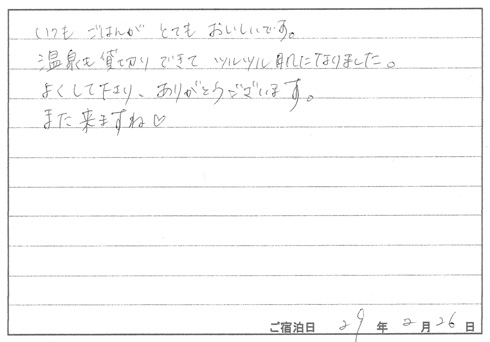 いつも ごはんが とても おいしいです。
温泉も 貸切り できて ツルツル 肌になりました。
よくして下さり、ありがとうございます。
また 来ますね♡
ご宿泊日 29 年 2 月 26 日